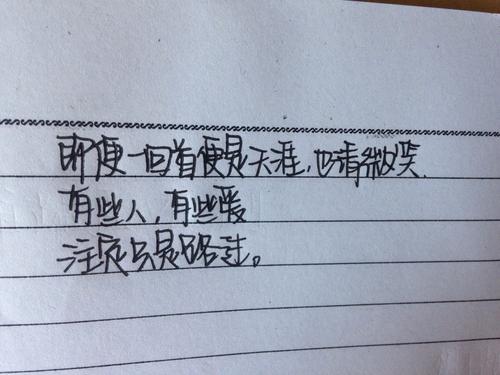 即便一回首便是天涯,也请微笑.
有些人,有些爱
注定只是路过。